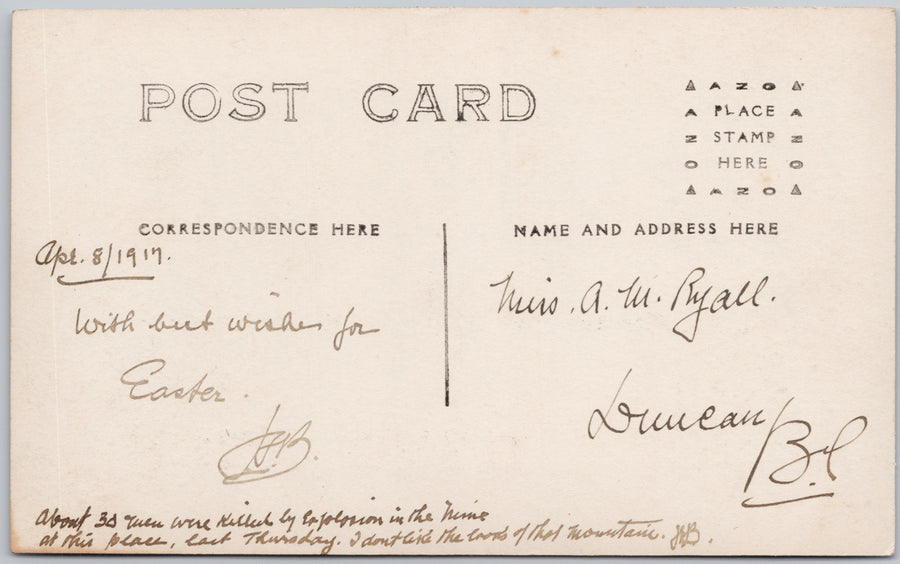 POST CARD
AZO
PLACE
STAMP
HERE
AZO
CORRESPONDENCE HERE
NAME AND ADDRESS HERE
Apr. 8/1917.
With best wishes for
Easter.
Miss. A. M. Ryall.
Duncan
B.C
About 30 men were killed by Explosion in the Mine
at this place, last Thursday. I dont like the looks of that mountain.